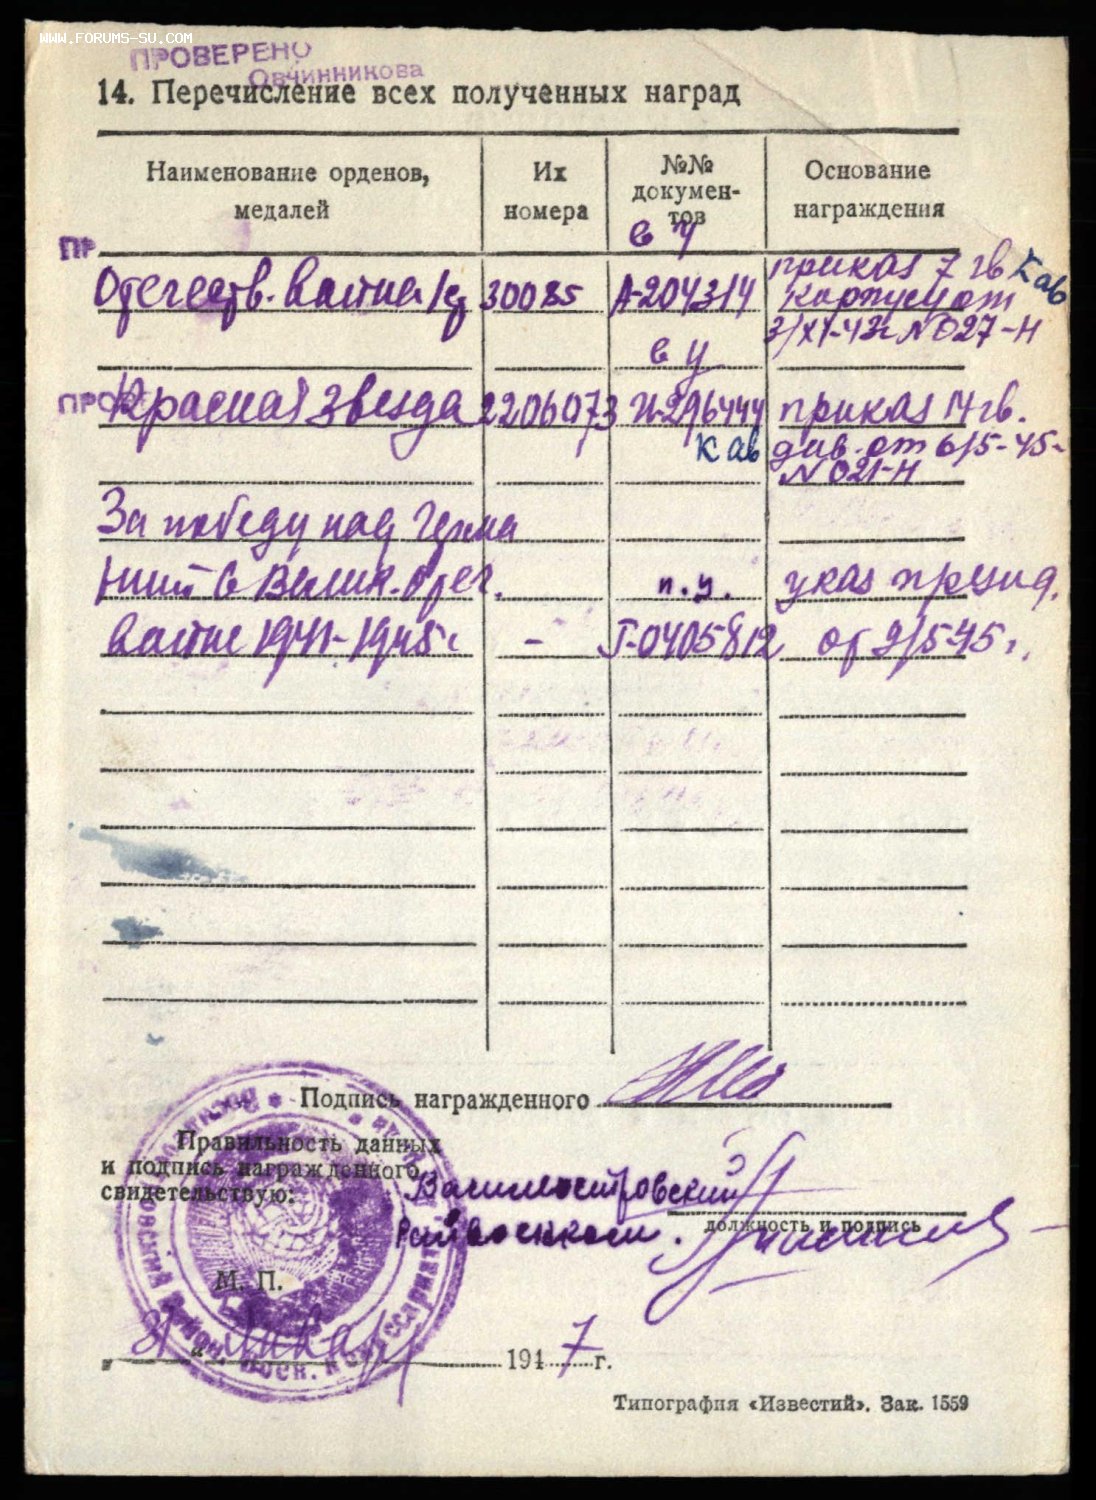 WWW.FORUMS-SU.COM
ПРОВЕРЕНО
Овчинникова
14. Перечисление всех полученных наград
Наименование орденов, медалей
Их номера
№№ докумен-тов
Основание награждения
ПР
в у
Отечеств. войны I ст 30085 А-204314 приказ 7 гв Кав
корпусу от
3/XI-43г N 027-Н
в у
ПРОВ
Красная Звезда 2206073 И-296444 приказ 14 гв.
Кав див. от 6/5-45-
N 021-Н
За победу над Герма
нией в Велик. Отеч. п.у. указ презид.
войне 1941-1945 г - Г-0405812 от 9/5-45 г.
Подпись награжденного
Правильность данных
и подпись награжденного
свидетельствую:
Василеостровский
Райвоенком.
должность и подпись
М. П.
31 января 1947 г.
Типография «Известий». Зак. 1559